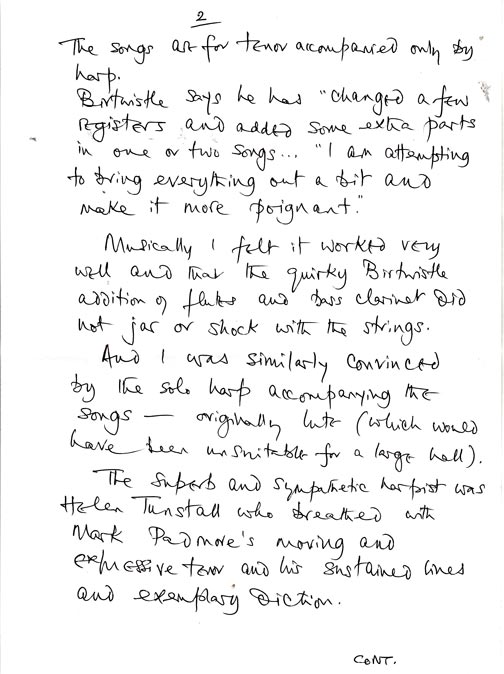 2
The songs are for tenor accompanied only by
harp.
Birtwistle says he has "changed a few
registers and added some extra parts
in one or two songs... "I am attempting
to bring everything out a bit and
make it more poignant."
Musically I felt it worked very
well and that the quirky Birtwistle
addition of flutes and bass clarinet did
not jar or shock with the strings.
And I was similarly convinced
by the solo harp accompanying the
songs — originally lute (which would
have been unsuitable for a large hall).
The superb and sympathetic harpist was
Helen Tunstall who breathed with
Mark Padmore's moving and
expressive tenor and his sustained lines
and exemplary diction.
CONT.